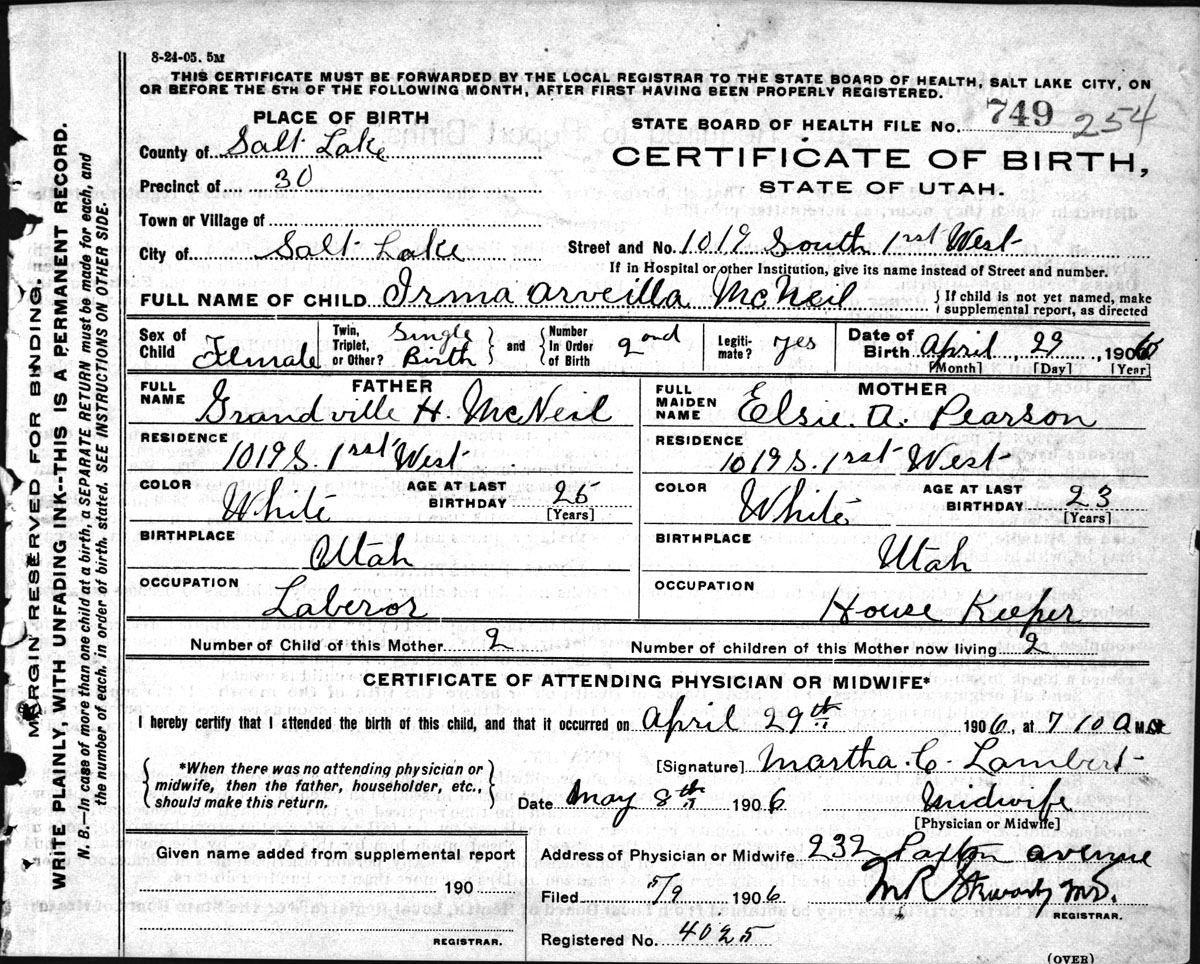 8-24-05. 5M
THIS CERTIFICATE MUST BE FORWARDED BY THE LOCAL REGISTRAR TO THE STATE BOARD OF HEALTH, SALT LAKE CITY, ON
OR BEFORE THE 5TH OF THE FOLLOWING MONTH, AFTER FIRST HAVING BEEN PROPERLY REGISTERED.
PLACE OF BIRTH
STATE BOARD OF HEALTH FILE No. 749 254
County of Salt Lake
CERTIFICATE OF BIRTH,
Precinct of 30
STATE OF UTAH.
Town or Village of
City of Salt Lake
Street and No. 1019 South 1rst West
If in Hospital or other Institution, give its name instead of Street and number.
FULL NAME OF CHILD Irma Arveilla McNeil
{ If child is not yet named, make
supplemental report, as directed
Sex of Child Female
Twin, Triplet, or Other? Single Birth
and
Number In Order of Birth 2ond
Legitimate? yes
Date of Birth April, 29, 1906
[Month] [Day] [Year]
FATHER
FULL NAME Grandville H. McNeil
MOTHER
FULL MAIDEN NAME Elsie. A. Pearson
RESIDENCE 1019 S. 1rst West
RESIDENCE 1019 S. 1rst West
COLOR White
AGE AT LAST BIRTHDAY 25
[Years]
COLOR White
AGE AT LAST BIRTHDAY 23
[Years]
BIRTHPLACE Utah
BIRTHPLACE Utah
OCCUPATION Laberor
OCCUPATION House Keeper
Number of Child of this Mother 2
Number of children of this Mother now living 2
CERTIFICATE OF ATTENDING PHYSICIAN OR MIDWIFE*
I hereby certify that I attended the birth of this child, and that it occurred on April 29th 1906, at 7 10 A M.
*When there was no attending physician or
midwife, then the father, householder, etc.,
should make this return.
[Signature] Martha. C. Lambert
Date May 8th 1906
Midwife
[Physician or Midwife]
Given name added from supplemental report
190
REGISTRAR.
Address of Physician or Midwife 232 Paxton avenue
Filed 5/9 1906
REGISTRAR.
Registered No. 4025
(OVER)
MARGIN RESERVED FOR BINDING.
WRITE PLAINLY, WITH UNFADING INK--THIS IS A PERMANENT RECORD.
N. B.—In case of more than one child at a birth, a SEPARATE RETURN must be made for each, and
the number of each, in order of birth, stated. SEE INSTRUCTIONS ON OTHER SIDE.